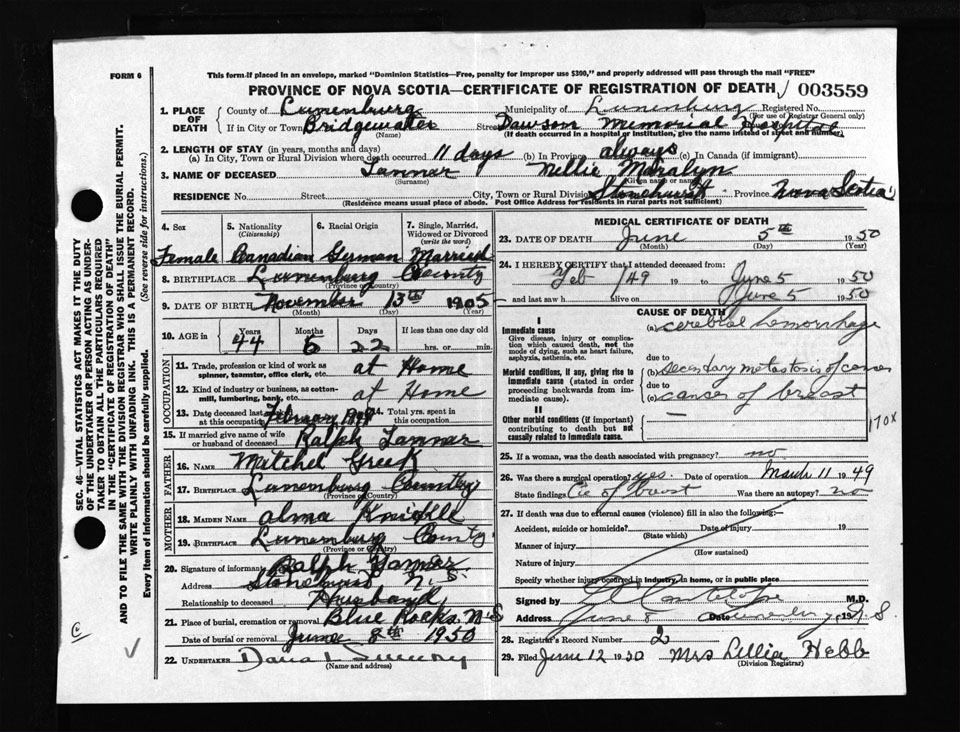 FORM 6
This form if placed in an envelope, marked "Dominion Statistics—Free, penalty for improper use $300," and properly addressed will pass through the mail "FREE"
PROVINCE OF NOVA SCOTIA—CERTIFICATE OF REGISTRATION OF DEATH 003559
1. PLACE OF DEATH County of Lunenburg Municipality of Lunenburg Registered No.
(For use of Registrar General only)
If in City or Town Bridgewater Street Dawson Memorial Hospital
(Name) (If death occurred in a hospital or institution, give the name instead of street and number)
2. LENGTH OF STAY (in years, months and days)
(a) In City, Town or Rural Division where death occurred 11 days (b) In Province always (c) In Canada (if immigrant)
3. NAME OF DECEASED Nellie Maralyn
(Surname) (Given name or names)
RESIDENCE No. Street City, Town or Rural Division Stonehurst Province Nova Scotia
(Residence means usual place of abode. Post Office Address for residents in rural parts not sufficient)
4. Sex 5. Nationality (Citizenship) 6. Racial Origin 7. Single, Married, Widowed or Divorced (write the word)
Female Canadian German Married
8. BIRTHPLACE Lunenburg County
(Province or Country)
9. DATE OF BIRTH November 13th 1905
(Month) (Day) (Year)
10. AGE in Years Months Days If less than one day old
44 6 22 hrs. or min.
OCCUPATION
11. Trade, profession or kind of work as spinner, teamster, office clerk, etc. at Home
12. Kind of industry or business, as cotton-mill, lumbering, bank, etc. at Home
13. Date deceased last worked at this occupation February 14. Total yrs. spent in this occupation
15. If married give name of wife or husband of deceased Ralph
FATHER
16. NAME Mitchel Greek
17. BIRTHPLACE Lunenburg County
(Province or Country)
MOTHER
18. MAIDEN NAME Alma
19. BIRTHPLACE Lunenburg County
(Province or Country)
20. Signature of informant Ralph
Address N. S.
Relationship to deceased Husband
21. Place of burial, cremation or removal Blue Rocks N.S
Date of burial or removal June 8th 1950
22. UNDERTAKER
(Name and address)
MEDICAL CERTIFICATE OF DEATH
23. DATE OF DEATH June 5th 1950
(Month) (Day) (Year)
24. I HEREBY CERTIFY that I attended deceased from
Feb /49 to June 5 1950
and last saw h alive on June 5 1950
CAUSE OF DEATH
I
Immediate cause
Give disease, injury or complication which caused death, not the mode of dying, such as heart failure, asphyxia, asthenia, etc.
(a) cerebral hemorrhage
due to
Morbid conditions, if any, giving rise to immediate cause (stated in order proceeding backwards from immediate).
(b) Secentary metastosis of cancer
due to
(c) cancer of breast
II
Other morbid conditions (if important) contributing to death but not causally related to immediate cause.
170X
25. If a woman, was the death associated with pregnancy? no
26. Was there a surgical operation? yes. Date of operation March 11 1949
State findings Ca of breast Was there an autopsy? no
27. If death was due to external causes (violence) fill in also the following:
Accident, suicide or homicide? Date of injury 19
(State which)
Manner of injury
(How sustained)
Nature of injury
Specify whether injury occurred in industry, in home, or in public place
Signed by M.D.
Address Date 19
28. Registrar's Record Number 2
29. Filed June 12 1950 Mrs Lillia Hebb
(Division Registrar)
SEC. 46—VITAL STATISTICS ACT MAKES IT THE DUTY
OF THE UNDERTAKER OR PERSON ACTING AS UNDER-
TAKER TO OBTAIN ALL THE PARTICULARS REQUIRED
IN THE "CERTIFICATE OF REGISTRATION OF DEATH"
AND TO FILE THE SAME WITH THE DIVISION REGISTRAR WHO SHALL ISSUE THE BURIAL PERMIT.
WRITE PLAINLY WITH UNFADING INK. THIS IS A PERMANENT RECORD.
Every item of information should be carefully supplied. (See reverse side for instructions.)